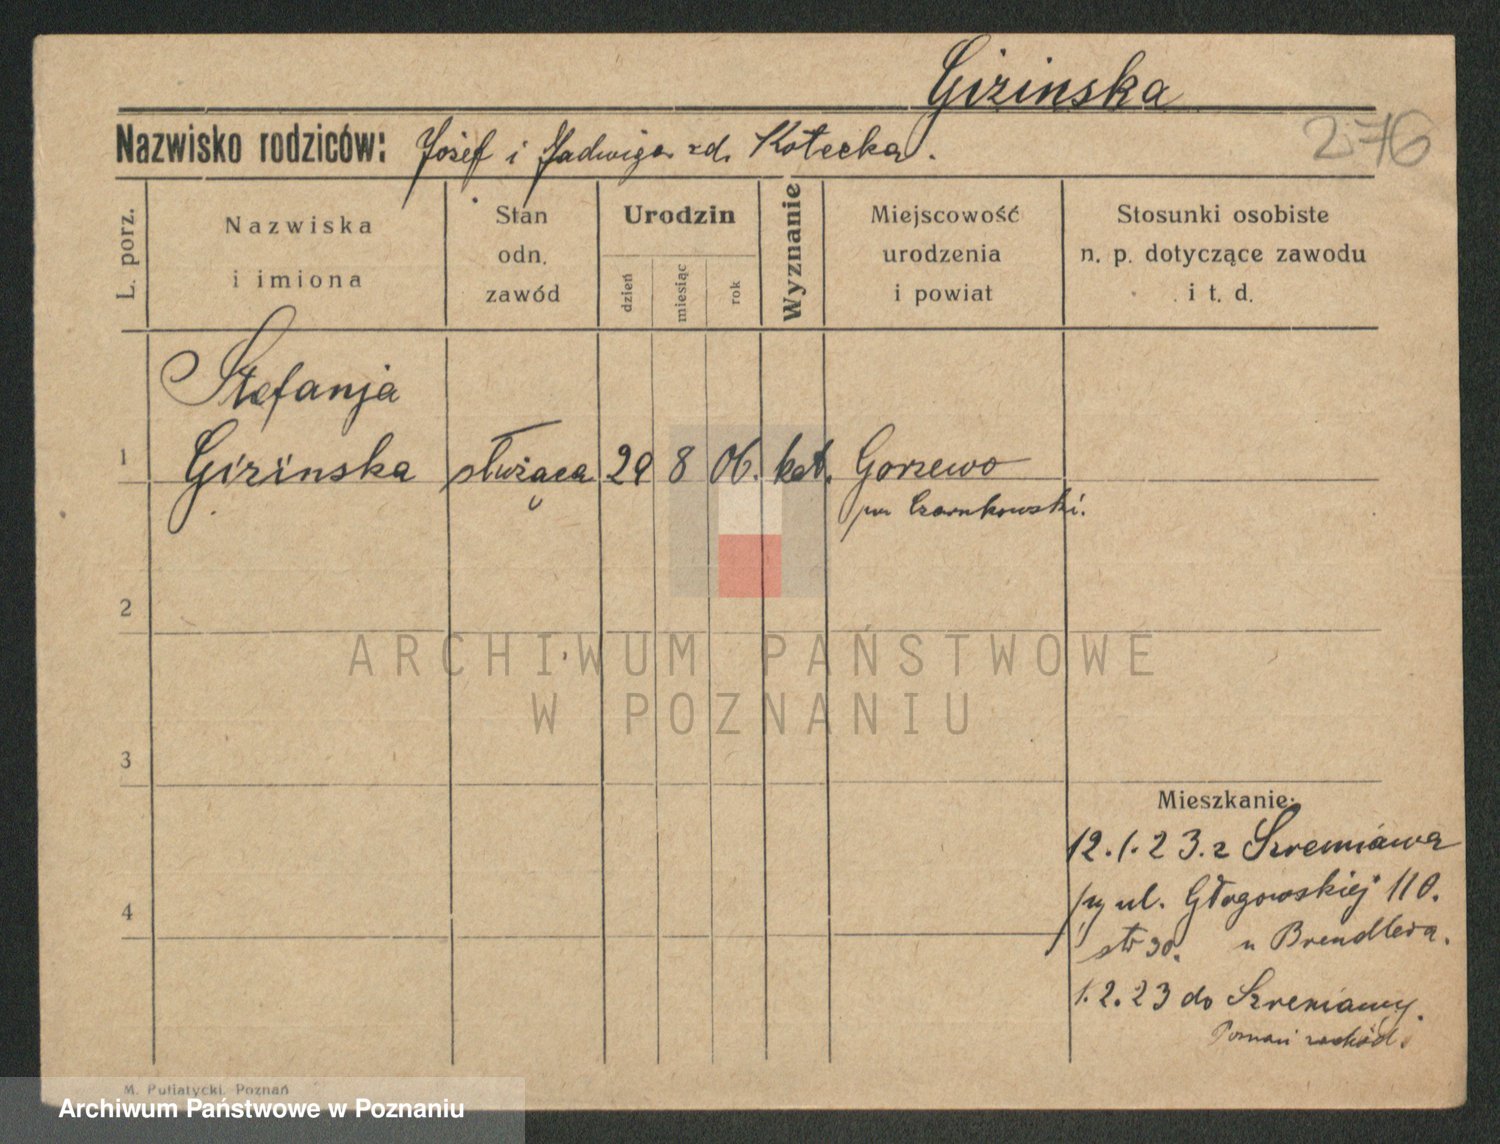 Giżinska
276
Nazwisko rodziców: Jożef i Jadwiga zd. Kotecka.
L. porz.
Nazwiska
i imiona
Stan
odn.
zawód
Urodzin
dzień
miesiąc
rok
Wyznanie
Miejscowość
urodzenia
i powiat
Stosunki osobiste
n. p. dotyczące zawodu
i t. d.
1
Stefanja
Giżinska
służąca
29
8
06.
kat.
Gorzewo
pw Czarnkowski.
2
3
4
Mieszkanie:
12.1.23. z Szreniawa
przy ul. Głogowskiej 110.
str 30. u Brendlera.
1.2.23 do Szreniawy.
Poznań zachód.
M. Putiatycki, Poznań
ARCHIWUM PAŃSTWOWE
W POZNANIU
Archiwum Państwowe w Poznaniu